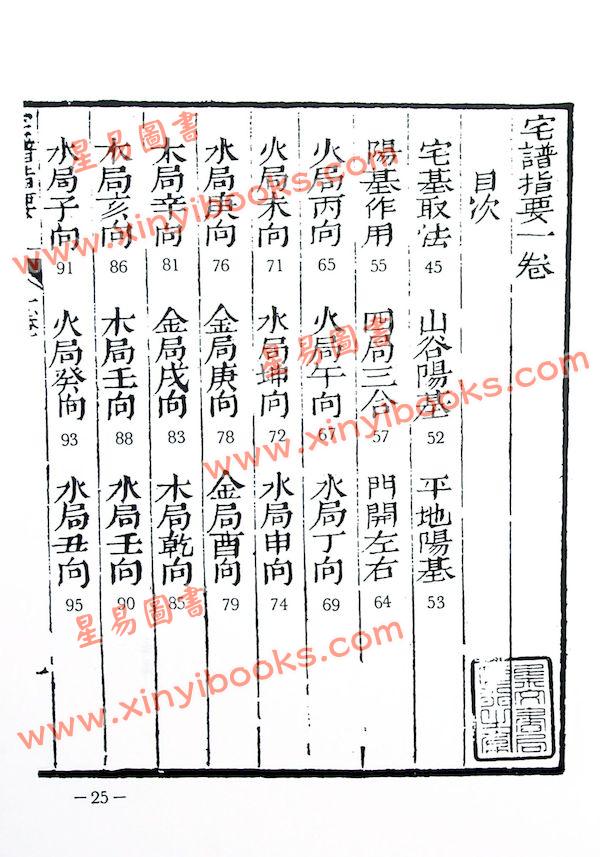 宅譜指要一卷
目次
宅基取法 45 山谷陽基 52 平地陽基 53
陽基作用 55 四局三合 57 門開左右 64
火局丙向 65 火局午向 67 水局丁向 69
火局未向 71 水局坤向 72 水局申向 74
水局庚向 76 金局庚向 78 金局酉向 79
木局辛向 81 金局戌向 83 木局乾向 85
木局亥向 86 木局壬向 88 水局壬向 90
水局子向 91 火局癸向 93 水局丑向 95
宅譜指要
—25—
星易圖書
www.xinyibooks.com
星易圖書
www.xinyibooks.com
星易圖書
www.xinyibooks.com